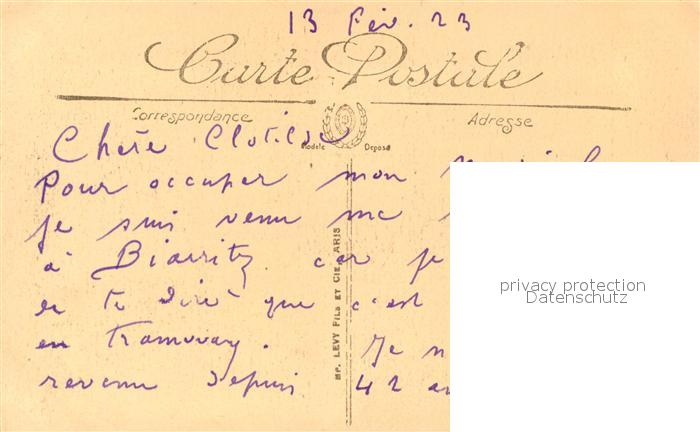 13 Fév. 23
Carte Postale
Correspondance Adresse
Modèle Déposé
Chère Clotilde
Pour occuper mon
je suis venu me
à Biarritz car je
te dire que c'est
en Tramway. Je n
revenu depuis 42 an
BP. LEVY FILS ET CIE, PARIS
privacy protection
Datenschutz